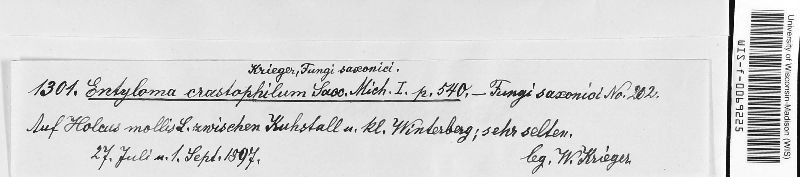 Krieger, Fungi saxonici.
1301. Entyloma crastophilum Sacc. Mich. I. p. 540. — Fungi saxonici No. 202.
Auf Holcus mollis L. zwischen Kuhstall u. kl. Winterberg; sehr selten.
27. Juli u. 1. Sept. 1897.
leg. W. Krieger.
University of Wisconsin-Madison (WIS)
WIS-f-0069225